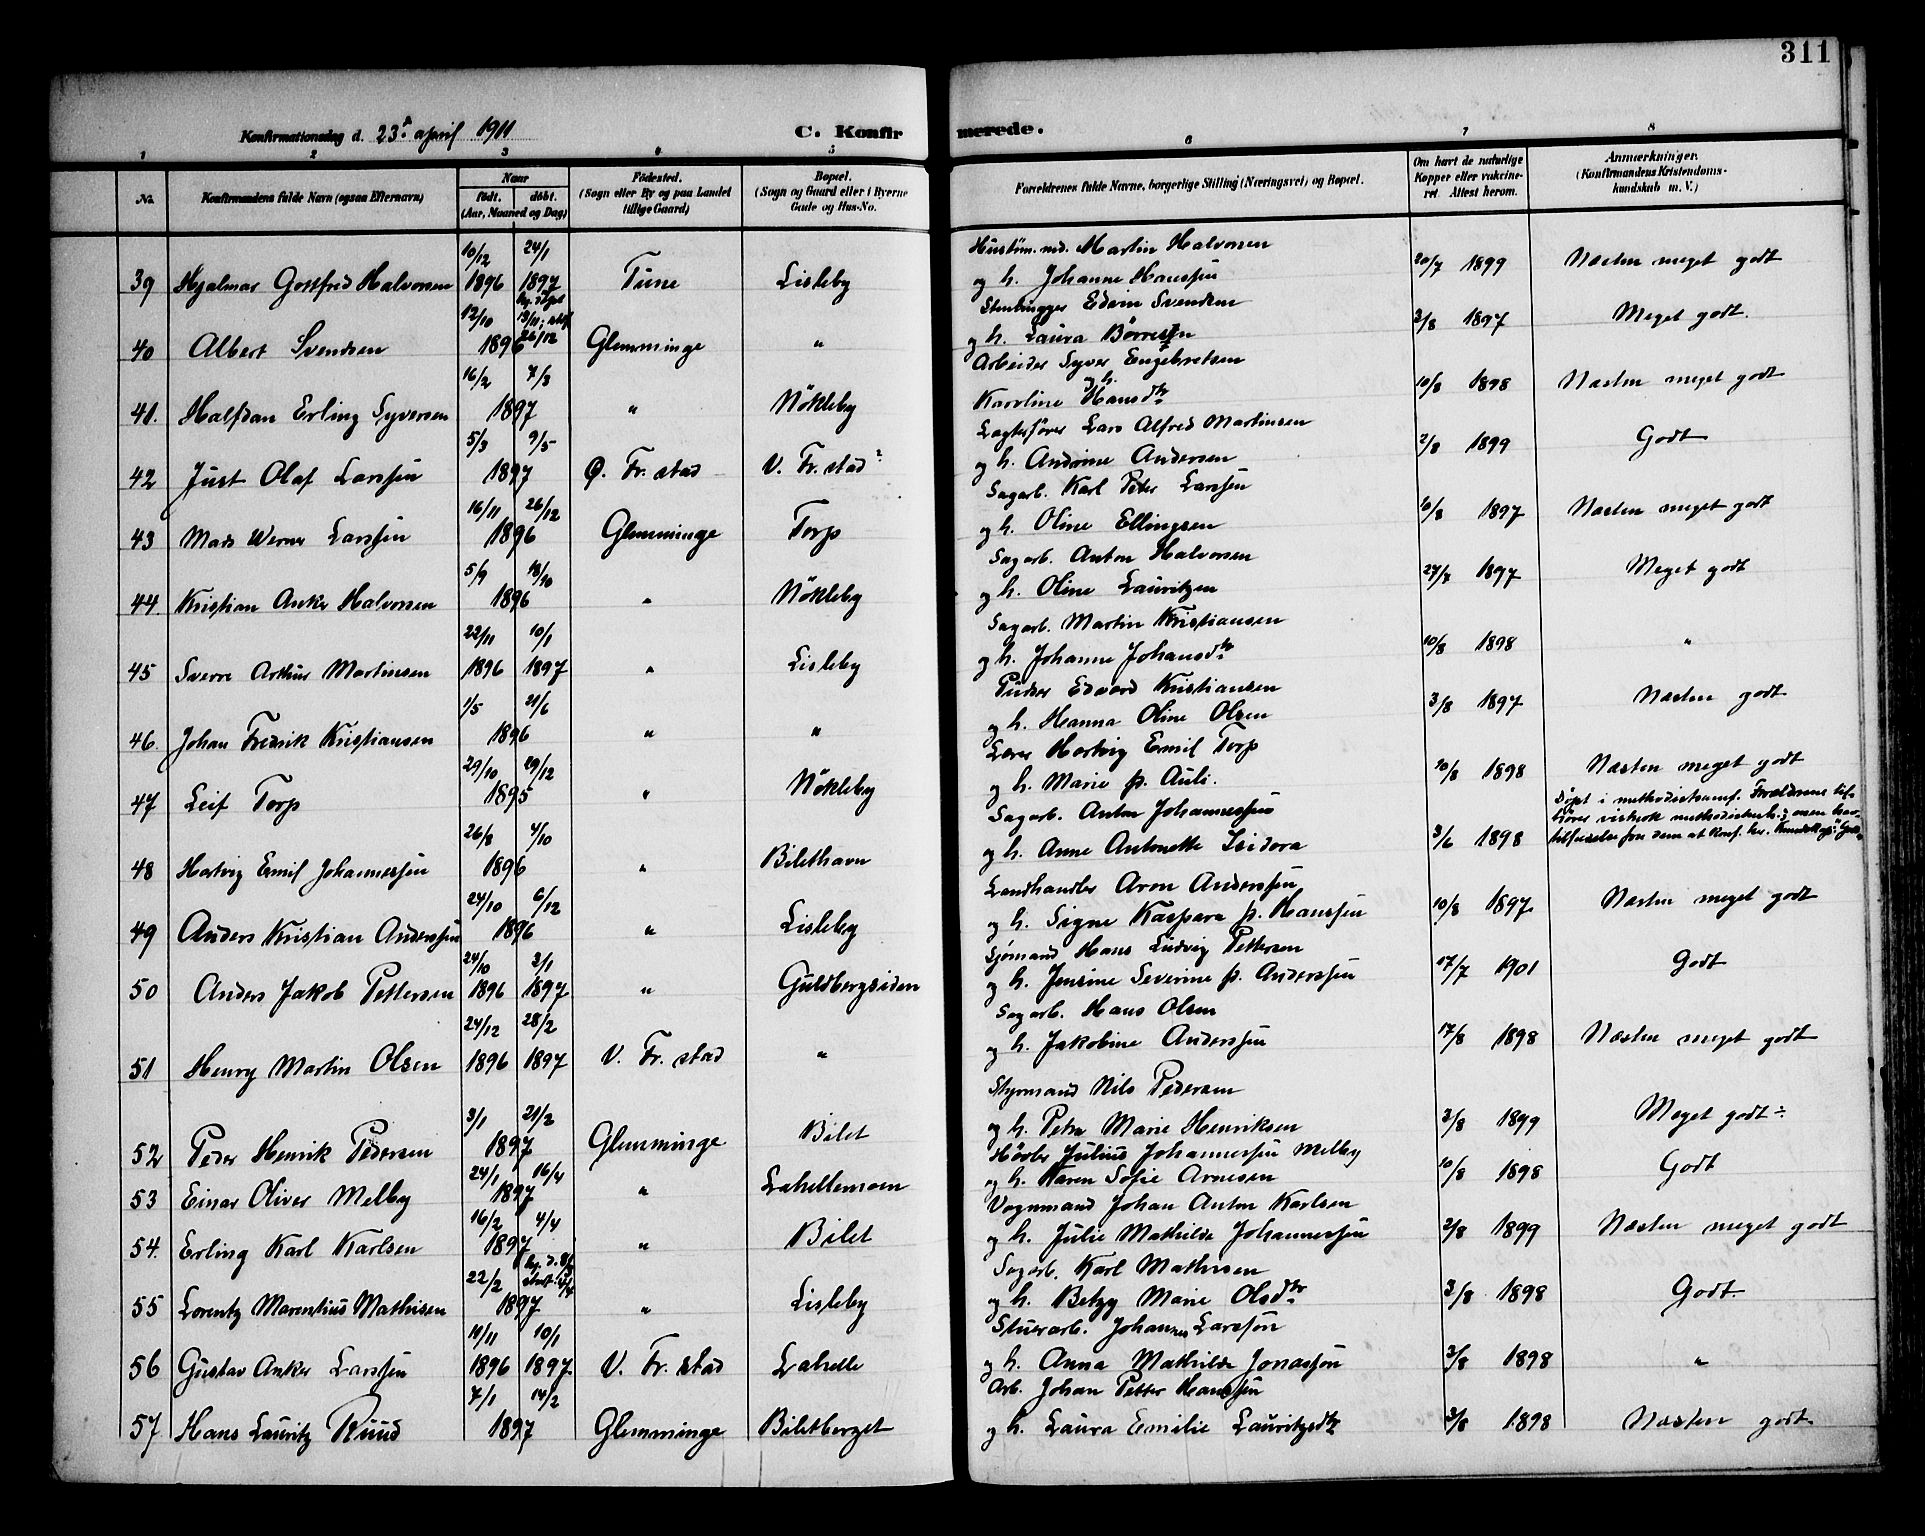 311
Konfirmationsdag d. 23. april 1911
C. Konfirmerede.
1 2 3 4 5 6 7 8
No. Konfirmandens fulde Navn (ogsaa Efternavn) Naar født. døbt. (Aar, Maaned og Dag) Fødested. (Sogn eller By og paa Landet tillige Gaard) Bopæl. (Sogn og Gaard eller i Byerne Gade og Hus-No. Forældrenes fulde Navne, borgerlige Stilling (Næringsvei) og Bopæl. Om havt de naturlige Kopper eller vakcineret. Attest herom. Anmærkninger. (Konfirmandens Kristendomskundskab m. V.)
39 Hjalmar Gottfred Halvorsen 10/12 1896 24/1 1897 Tune Lisleby Martin Halvorsen og h. Johanne Hanssen 20/7 1899 Næsten meget godt
40 Albert Svendsen 12/10 1896 26/12 Glemminge " Stenhugger Edvin Svendsen og h. Laura Børresen 2/8 1897 Meget godt.
41. Halfdan Erling Syversen 16/2 7/3 1897 " Nökleby Arbeider Syver Engebretsen og h. Karoline Hansdtr 10/8 1898 Næsten meget godt
42 Just Olaf Larssen 5/3 9/5 1897 Ø. Fr. stad V. Fr. stad Lars Alfred Martinsen og h. Andrine Andersen 2/8 1899 Godt
43 Mads Werner Larssen 16/11 26/12 1896 Glemminge Torp Sagarb. Karl Peter Larssen og h. Oline Ellingsen 10/8 1897 Næsten meget godt
44. Kristian Anker Halvorsen 5/9 18/10 1896 " Nökleby Sagarb. Anton Halvorsen og h. Oline Lauritzen 27/7 1897 Meget godt
45 Sverre Arthur Martinsen 22/11 1896 10/1 1897 " Lisleby Sagarb. Martin Kristiansen og h. Johanne Johansdtr 10/8 1898 "
46. Johan Fredrik Kristiansen 1/5 21/6 1896 " " Pudser Edvard Kristiansen og h. Hanna Oline Olsen 3/8 1897 Næsten godt
47 Leif Torp 29/10 29/12 1895 " Nökleby Lærer Hartvig Emil Torp og h. Marie f. Auli. 10/8 1898 Næsten meget godt
48 Hartvig Emil Johannessen 26/8 4/10 1896 " Bilethavn Sagarb. Anton Johannessen og h. Anne Antonette Isidora 3/6 1898 Døpt i methodistsamf. Forældrene
49 Anders Kristian Anderssen 24/10 6/12 1896 " Lisleby Landhandler Aron Anderssen og h. Signe Kaspara f. Hanssen 10/8 1897 Næsten meget godt
50 Anders Jakob Pettersen 24/10 1896 3/1 1897 " Guldbergsiden Sjømand Hans Ludvig Pettersen og h. Jensine Severine f. Anderssen 17/7 1901 Godt
51 Henry Martin Olsen 24/12 1896 28/2 1897 V. Fr. stad " Sagarb. Hans Olsen og h. Jakobine Anderssen 17/8 1898 Næsten meget godt
52 Peder Henrik Pedersen 3/1 21/2 1897 Glemminge Bilet Styrmand Nils Pedersen og h. Petra Marie Henriksen 2/8 1899 Meget godt
53 Einar Oliver Melby 24/1 16/4 1897 " Lahellemoen Høvler Julius Johannessen Melby og h. Karen Sofie Arnesen 10/8 1898 Godt
54. Erling Karl Karlsen 16/2 4/4 1897 " Bilet Vognmand Johan Anton Karlsen og h. Julie Mathilde Johannessen 2/8 1899 Næsten meget godt
55 Lorentz Marentius Mathisen 22/2 1897 " Lisleby Sagarb. Karl Mathisen og h. Betzy Marie Olsdtr 3/8 1898 Godt.
56 Gustav Anker Larssen 14/11 1896 10/1 1897 V. Fr. stad Lahelle Stuerarb. Johannes Larssøn og h. Anna Mathilde Jonassøn 3/8 1898 "
57 Hans Lauritz Ruud 7/1 14/2 1897 Glemminge Biletberget Arb. Johan Petter Hanssen og h. Laura Emilie Lauritzsdtr 3/8 1898 Næsten godt.